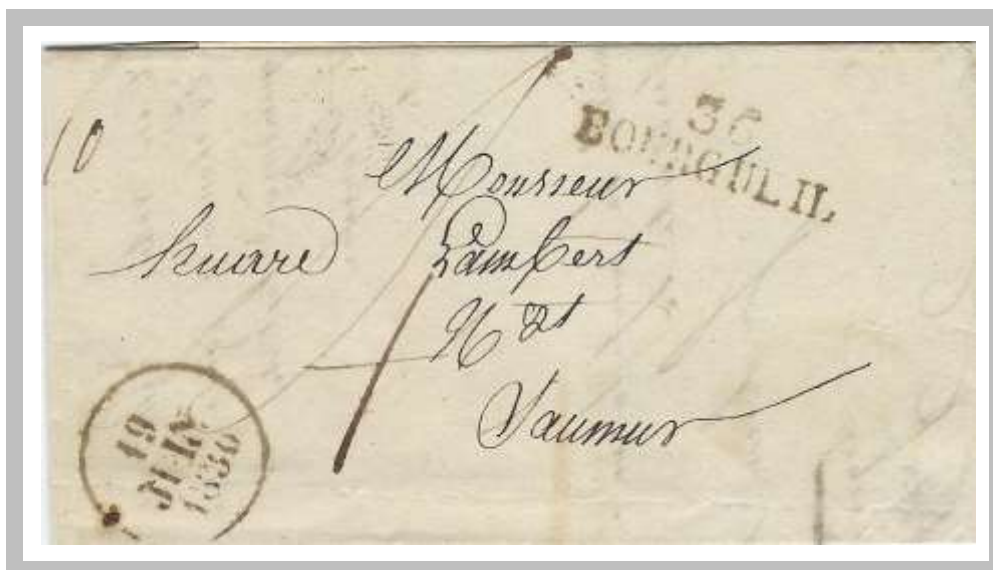 10
36
BOURGUEIL
Monsieur
Lambert
N gt
Saumur
19
JANV
1830